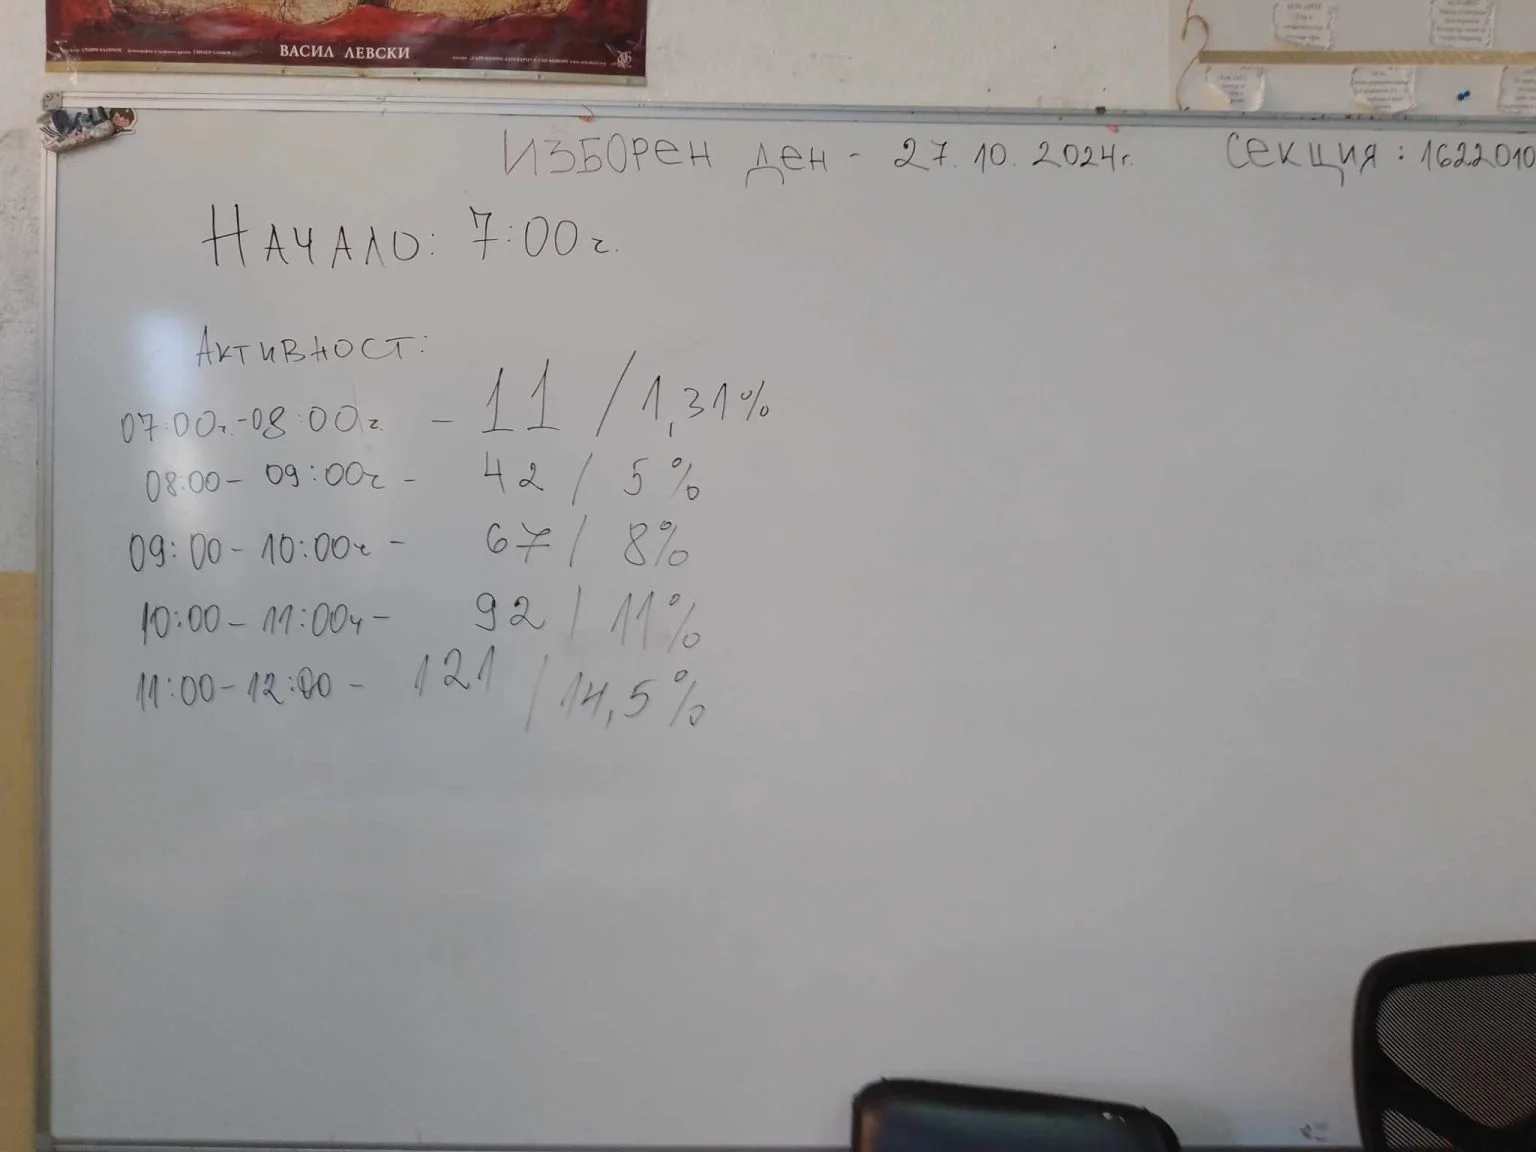 ВАСИЛ ЛЕВСКИ
ИЗБОРЕН ДЕН - 27.10.2024г. СЕКЦИЯ: 1622010
НАЧАЛО: 7:00ч.
АКТИВНОСТ:
07:00ч.-08:00ч. - 11 / 1,31%
08:00- 09:00ч - 42 / 5%
09:00-10:00ч - 67 / 8%
10:00-11:00ч- 92 / 11%
11:00-12:00 - 121 / 14,5%